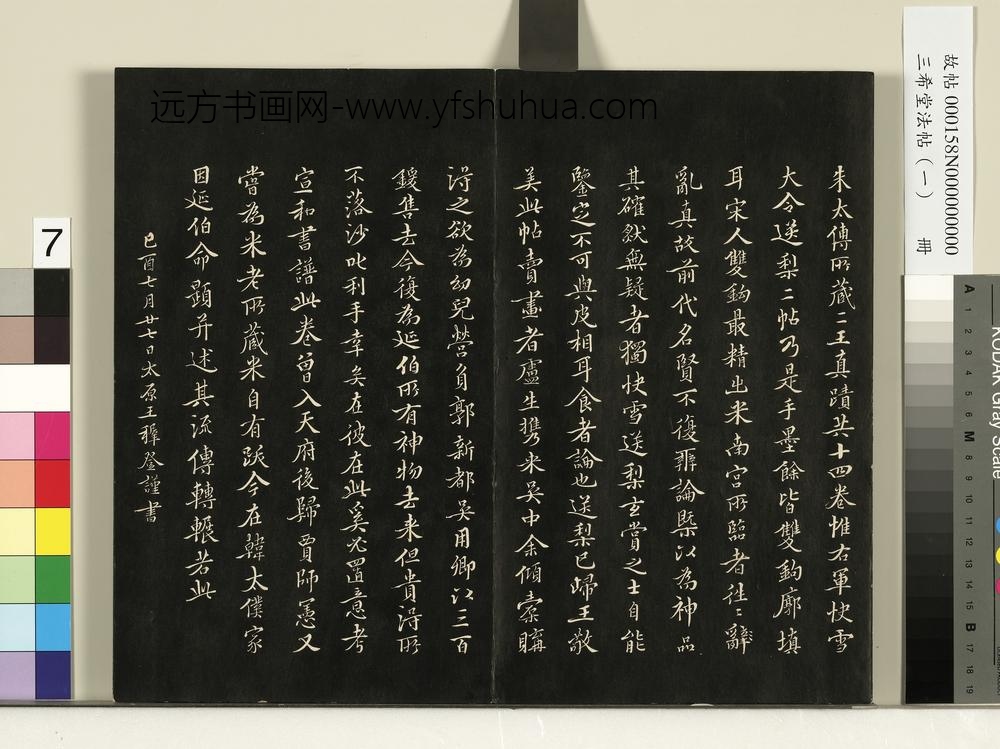 朱太傅所藏二王真蹟共十四卷惟右軍快雪
大令送梨二帖乃是手墨餘皆雙鈎廓填
耳宋人雙鈎最精出米南宮所臨者往〻辭
亂真故前代名賢不復辨論槩以為神品
其確然無疑者獨快雪送梨玄賞之士自能
鑒定不可與皮相耳食者論也送梨已歸王敬
美此帖賣畫者盧生攜來吳中余傾索購
得之欲為幼兒營負郭新都吳用卿以三百
鍰售去今復為延伯所有神物去来但貴得所
不落沙叱利手幸矣在彼在此奚足置意考
宣和書譜此卷曾入天府後歸賈師憲又
嘗為米老所藏米自有跋今在韓太僕家
因延伯命題并述其流傳轉輾若此
己酉七月廿七日太原王穉登謹書
远方书画网-www.yfshuhua.com
故帖 000158N000000000
三希堂法帖（一） 冊
7
KODAK Gray Scale
A 1 2 3 4 5 6 M 8 9 10 11 12 13 14 15 B 17 18 19